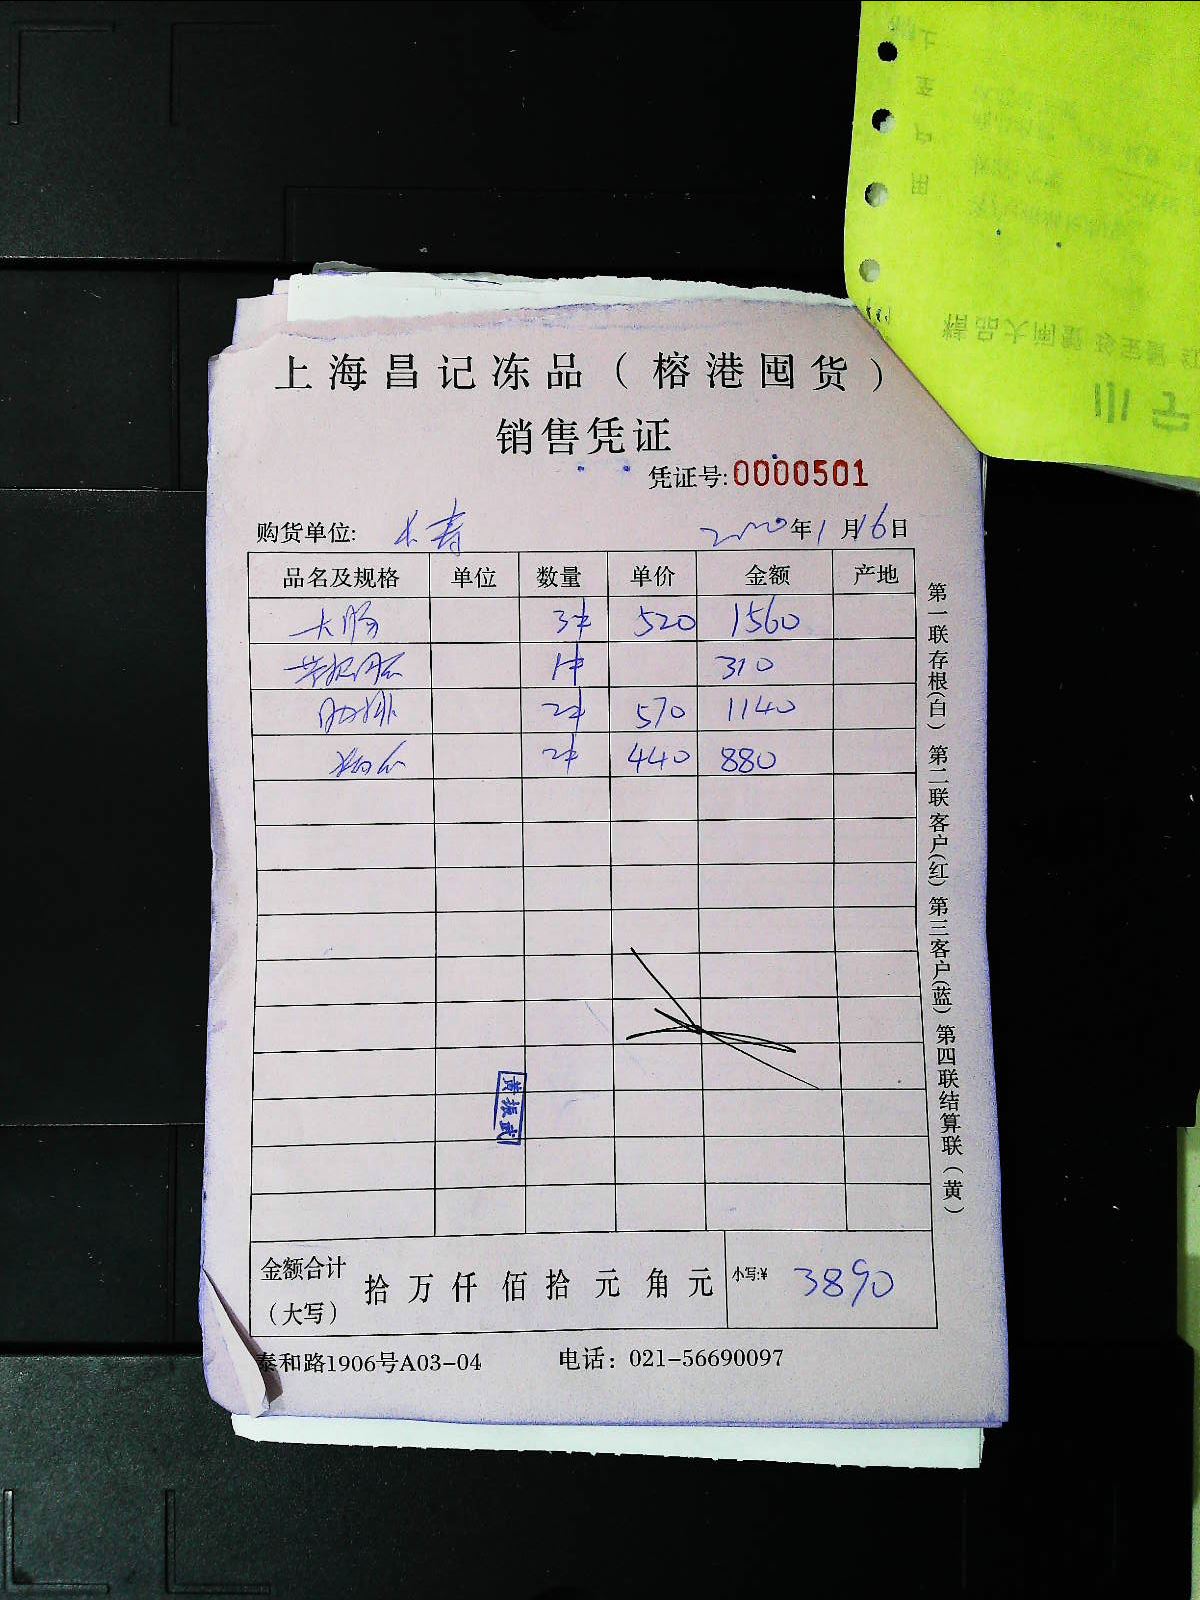 上海昌记冻品（榕港囤货）
销售凭证
凭证号:0000501
购货单位: 长寿 2020年1月16日
品名及规格 单位 数量 单价 金额 产地
大肠 3件 520 1560
1件 310
肋排 2件 570 1140
2件 440 880
黄振武
金额合计（大写） 拾 万 仟 佰 拾 元 角 元 小写:¥ 3890
泰和路1906号A03-04 电话：021-56690097
第一联存根(白) 第二联客户(红) 第三客户(蓝) 第四联结算联（黄）
精品大闸蟹